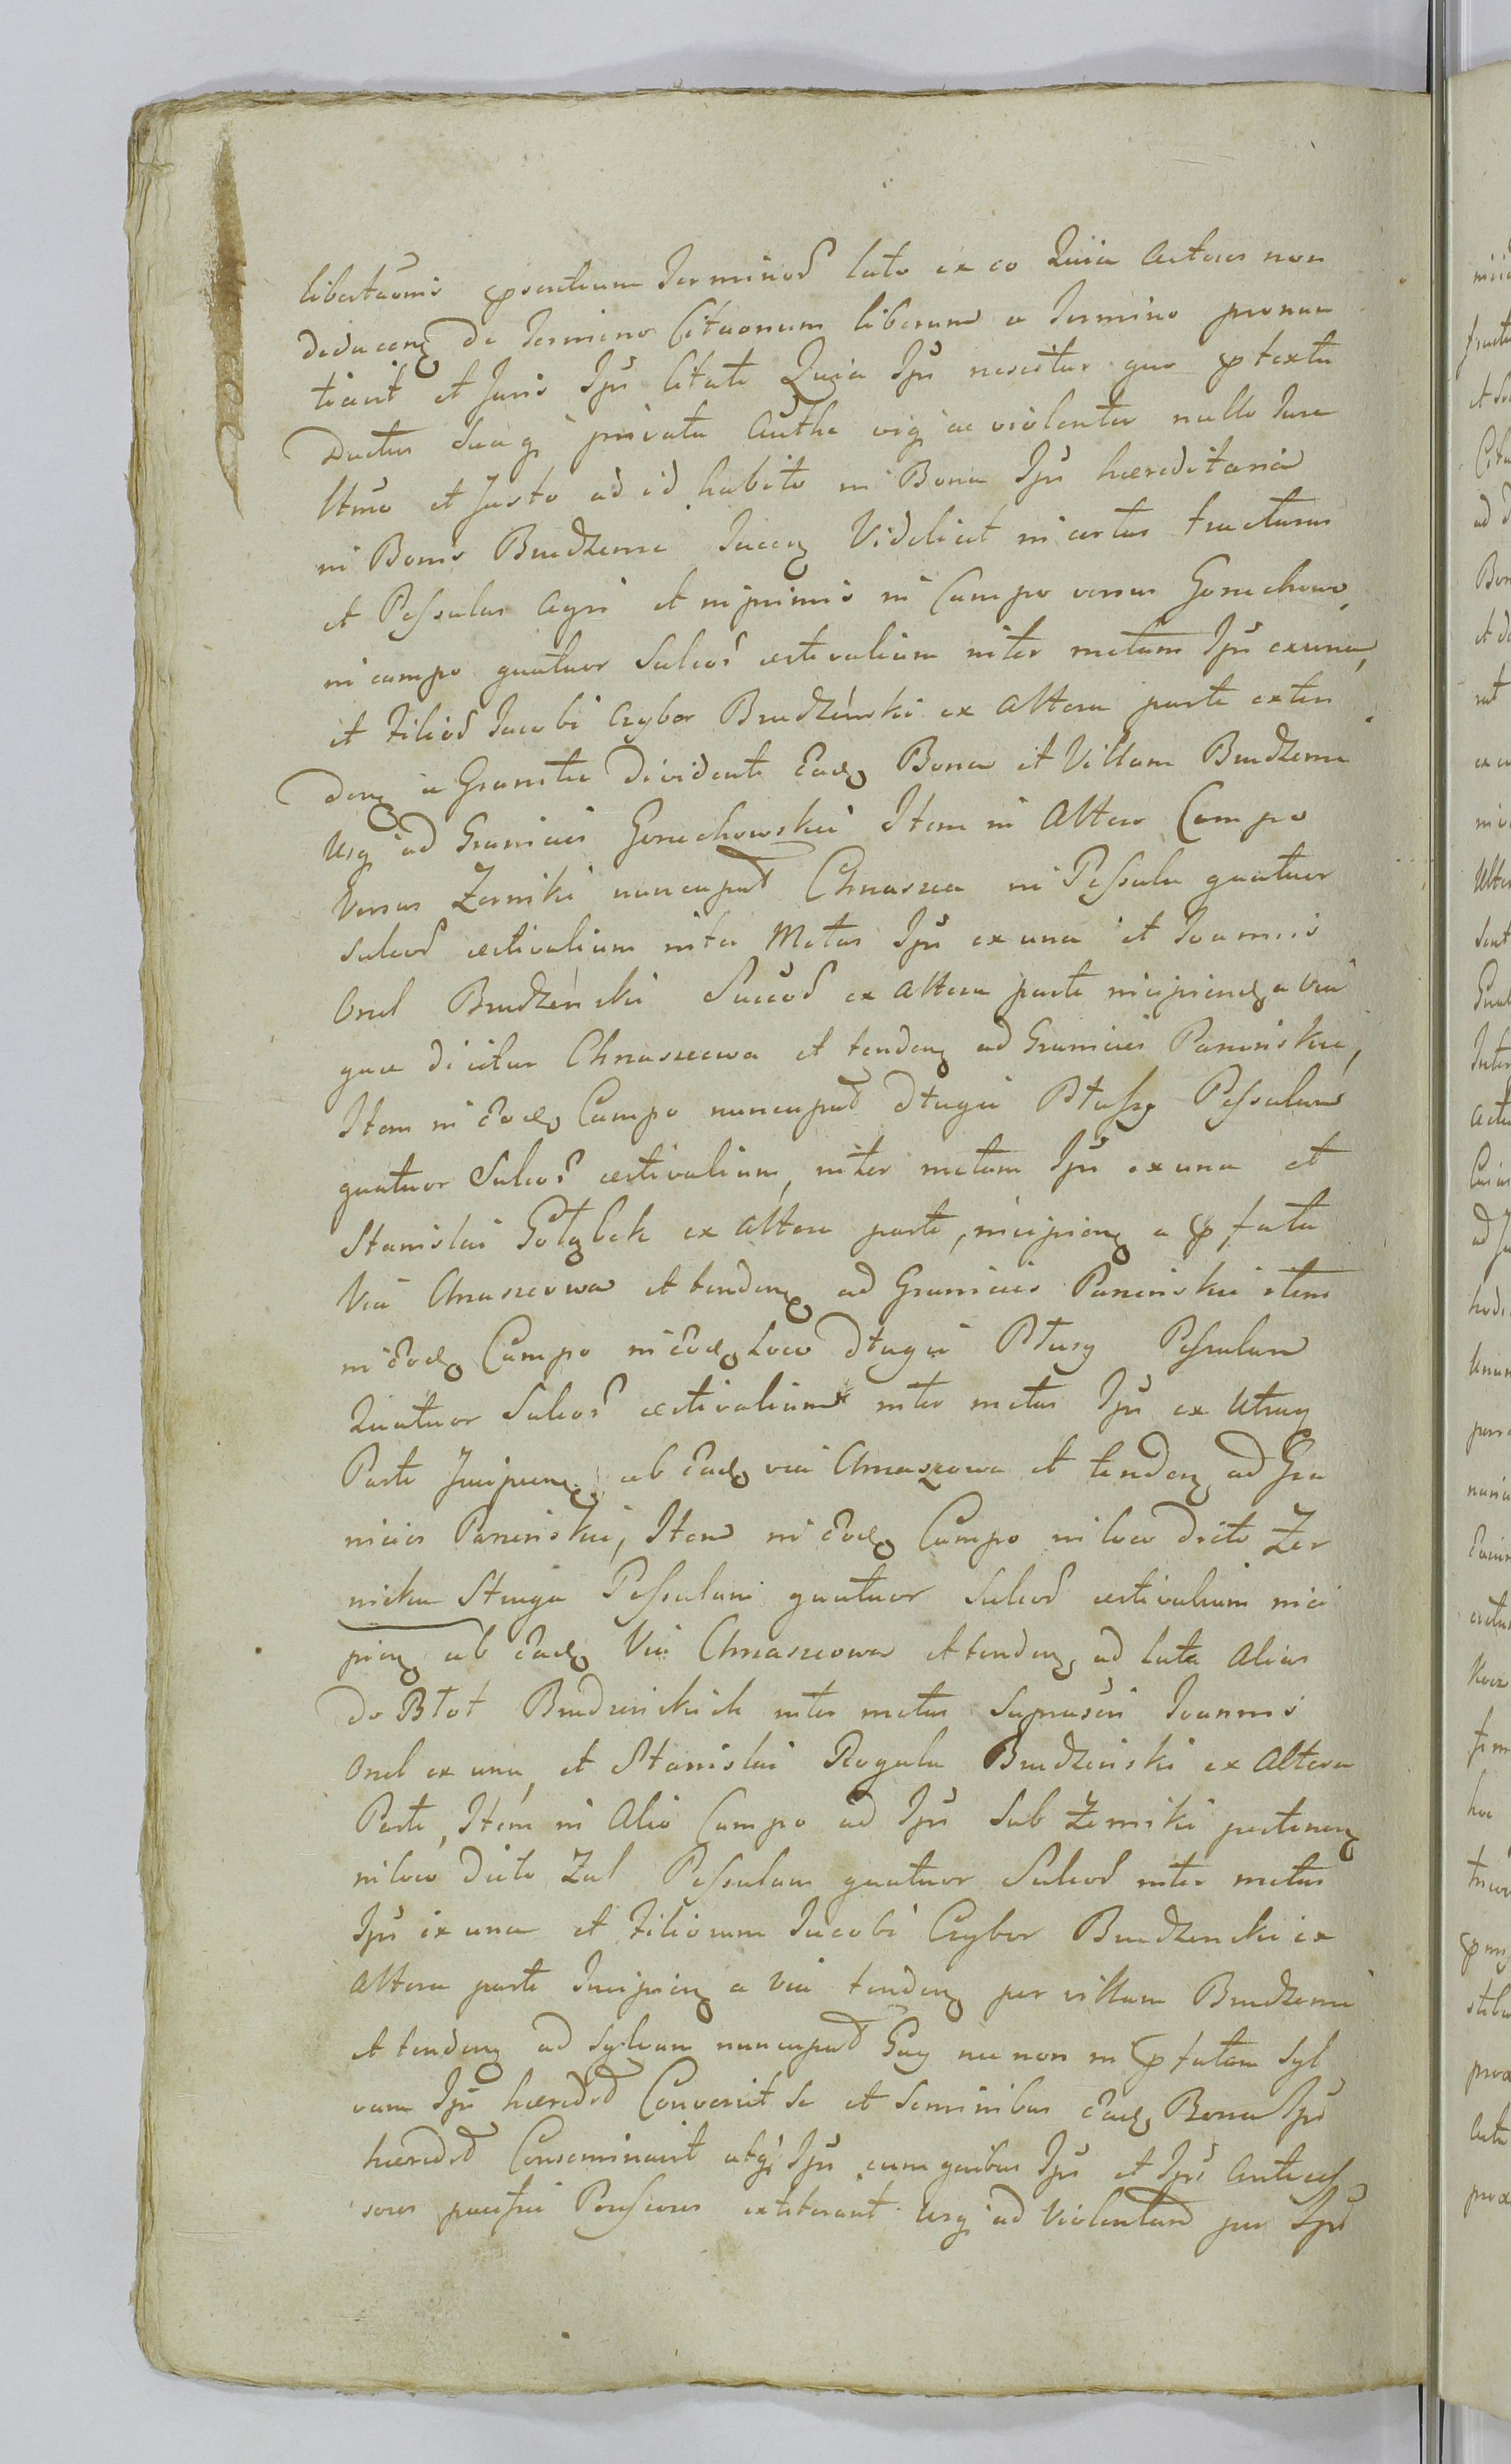 libertaōnis ꝓsentium Terminoꝝ lato ex eo Quia Actores non
deducenꝫ de Termino Citaonum liberum a Termino pronun
tiavit et Juris Ipŭ Citati Quia Ipŭ nescitur quo ꝓtextu
Ductus Suaqꝫ privata Autħe vigꝫ ac violenter nullo Jure
ltm̃o et Justo ad id habito in Bona Ipŭ hæreditaria
in Bonis Brudzenie Jacenꝫ Videlicet in certos tractusus
et Pessulas Agri et inprimis in Campo versus Gorzechowo,
in campo quatuor Sulcoꝝ æstivalium inter metam Ipŭ exuna,
et Filioꝝ Jacobi Czybor Brudzinski ex Altera parte exten
denꝫ a Granitie Dividente Eadꝫ Bona et Villam Brudzenie
Usqꝫ ad Granicies Gorzechowskie Item in Altero Campo
Versus Zerniki nuncupat Chnaszcza in Pessula quatuor
sulcoꝝ æstivalium inter Metas Ipŭ ex una et Joannis
Orzel Brudzeński Succoꝝ ex Altera parte incipienꝫ a Via
quæ dicitur Chnaszcewa et tendenꝫ ad Granicies Parzeńskie,
Item in Eodꝫ Campo nuncupat Długie Płassy Pessulam
quatuor Sulcoꝝ æstivalium, inter metam Ipŭ ex una et
Stanislai Gołąbek ex Altera parte, incipienꝫ a ꝓfata
Via Chnaszcowa et tendenꝫ ad Granicies Parzeńskie item
in Eodꝫ Campo in Eodꝫ Loco Długie Płasy Pessulam
Quatuor Sulcoꝝ æstivalium inter metas Ipŭ ex Utraqꝫ
Parte Incipienꝫ ab Eadꝫ via Chnaszcowa et tendenꝫ ad Gra
nicies Parzeńskie, Item in Eodꝫ Campo in loco dicto Zer
nicka Struga Pessulam quatuor Sulcoꝝ æstivalium inci
pienꝫ ab Eadꝫ Via Chnaszcowa et tendenꝫ ad luta Alias
do Błot Brudzinskich inter metas Suprascri Joannis
Orzel ex una, et Stanislai Rogala Brudzinski ex Altera
Parte, Item in Alio Campo ad Ipŭ Sub Zerniki pertinenꝫ
in loco Dicto Zal Pessulam quatuor Sulcoꝝ inter metas
Ipŭ ex una et Filiorum Jacobi Czybor Brudzenski ex
Altera parte Incipienꝫ a Via tendenꝫ per villam Brudzenie
et tendenꝫ ad Sylvam nuncupat Gay nec non in ꝓfatam Syl
vam Ipŭ hæredꝝ Convenit Se et Seminibus Eadꝫ Bona Ipŭ
hæredꝝ Conseminavit atqꝫ Ipŭ cum quibus Ipŭ et Ipŭ Anteces
sores pacifici Possesores extiterant Usqꝫ ad Violentam per Ipŭ